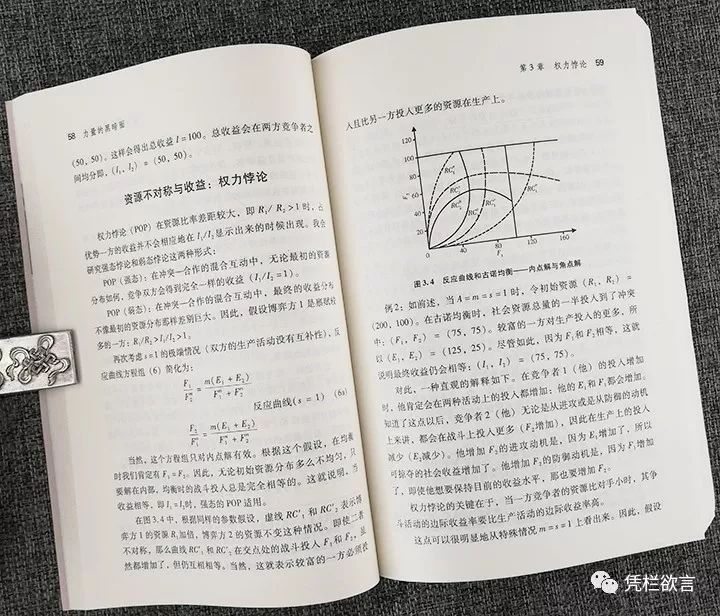 58 力量的黑暗面
(50, 50)。这样会得出总收益 I=100。总收益会在两方竞争者之
间均分即,(I₁, I₂) = (50, 50)。
资源不对称与收益:权力悖论
权力悖论(POP)在资源比率差距较大,即 R₁/R₂>1时,占
优势一方的收益并不会相应地在 I₁/I₂显示出来的时候出现。我会
研究强态悖论和弱态悖论这两种形式:
POP(强态):在冲突—合作的混合互动中,无论最初的资源
分布如何,竞争双方会得到完全一样的收益(I₁/I₂=1)。
POP(弱态):在冲突—合作的混合互动中,最终的收益分布
不像最初的资源分布那样差别巨大。因此,假设博弈方1是那较
多的一方:R₁/R₂>I₁/I₂>1。
再次考虑s=1的极端情况(双方的生产活动没有互补性),反
应曲线方程组(6)简化为:
F₁/F₂ᵐ = m(E₁+E₂)/(F₁ᵐ+F₂ᵐ)
反应曲线(s=1) (6a)
F₂/F₁ᵐ = m(E₁+E₂)/(F₁ᵐ+F₂ᵐ)
当然,这个方程组只对内点解有效。根据这个假设,在均衡
时我们肯定有F₁=F₂。因此,无论初始资源分布多么不均匀,只
要解在内部,均衡时的战斗投入总是完全相等的。这就说明,当
收益相等,即I₁=I₂时,强态的POP适用。
在图3.4中,根据同样的参数假设,虚线RC'₁和RC'₂表示博
弈方1的资源R₁加倍,博弈方2的资源不变这种情况。即使二者
不对称,那么曲线RC'₁和RC'₂在交点处的战斗投入F₁和F₂,虽
然都增加了,但仍互相相等。当然,这就表示较富的一方必须投
第3章 权力悖论 59
入且比另一方投入更多的资源在生产上。
120
100
80
60
40
20
0
F₂
40
80
F₁
120
160
图3.4 反应曲线和古诺均衡——内点解与角点解
例2:如前述,当A=m=s=1时,令初始资源(R₁, R₂)=
(200, 100)。在古诺均衡时,社会资源总量的一半投入到了冲突
中:(F₁, F₂)=(75, 75)。较富的一方对生产投入的更多,所
以(E₁, E₂)=(125, 25)。尽管如此,因为F₁和F₂相等,这就
说明最终收益仍会相等:(I₁, I₂)=(75, 75)。
对此,一种直观的解释如下。在竞争者1(他)的投入增加
时,他肯定会在两种活动上的投入都增加:他的E₁和F₁都会增加。
知道了这点以后,竞争者2(他)无论是从进攻或是从防御的动机
上来讲,都会在战斗上投入更多(F₂增加),因此在生产上的投入
减少(E₂减少)。他增加F₂的进攻动机是,因为E₁增加了,所以
可掠夺的社会收益增加了。他增加F₂的防御动机是,因为F₁增加
了,即使他想要保持目前的收益水平,那也要增加F₂。
权力悖论的关键在于,当一方竞争者的资源比对手小时,其争
斗活动的边际收益率要比生产活动的边际收益率高。
这点可以很明显地从特殊情况m=s=1上看出来。因此,假设
凭栏欲言